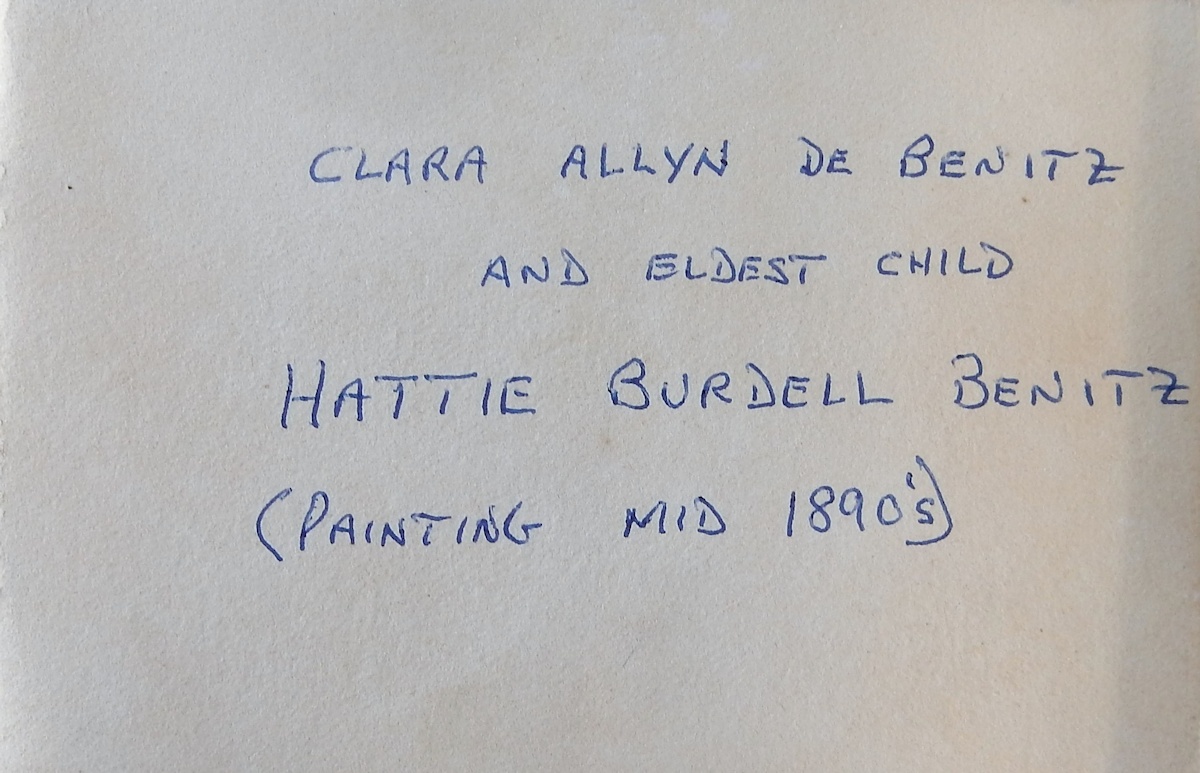 CLARA ALLYN DE BENITZ
AND ELDEST CHILD
HATTIE BURDELL BENITZ
(PAINTING MID 1890's)